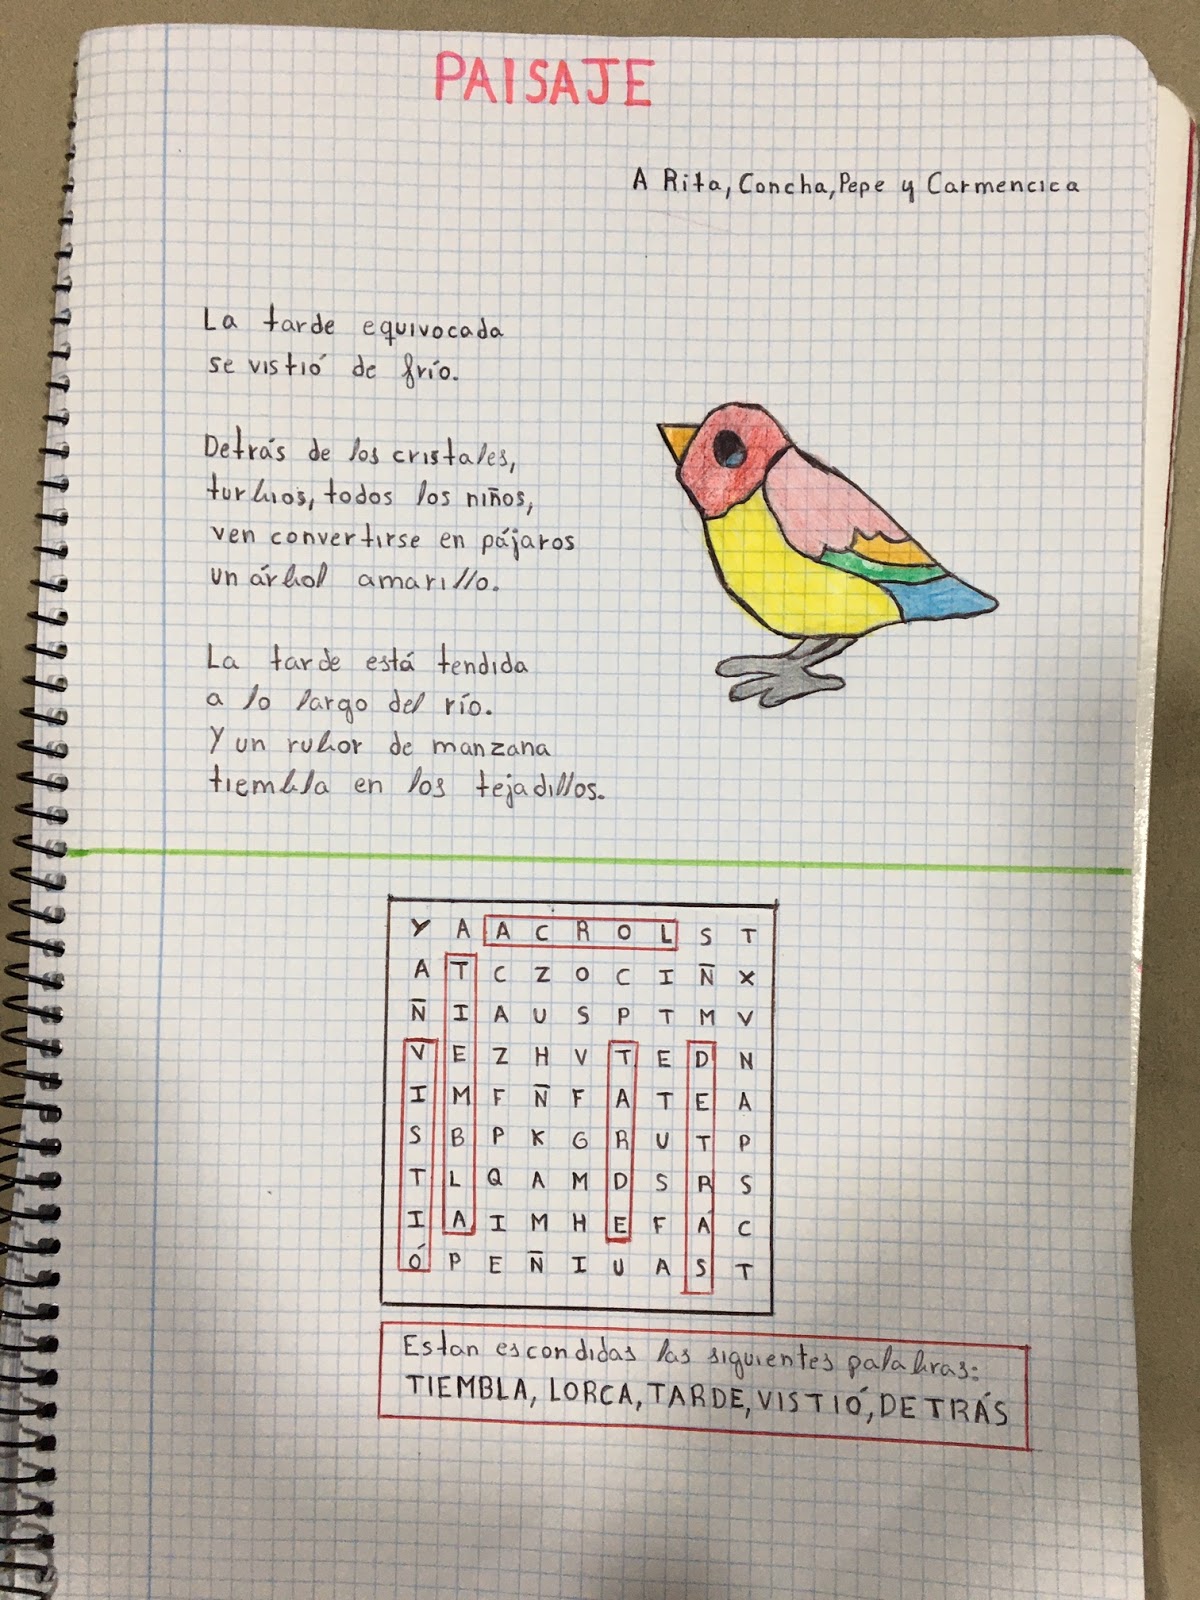 PAISAJE
A Rita, Concha, Pepe y Carmencica
La tarde equivocada
se vistió de frío.
Detrás de los cristales,
turbios, todos los niños,
ven convertirse en pájaros
un árbol amarillo.
La tarde está tendida
a lo largo del río.
Y un rubor de manzana
tiembla en los tejadillos.
Y A A C R O L S T
A T C Z O C I Ñ X
Ñ I A U S P T M V
V E Z H V T E D N
I M F Ñ F A T E A
S B P K G R U T P
T L Q A M D S R S
I A I M H E F Á C
Ó P E Ñ I U A S T
Estan escondidas las siguientes palabras:
TIEMBLA, LORCA, TARDE, VISTIÓ, DETRÁS